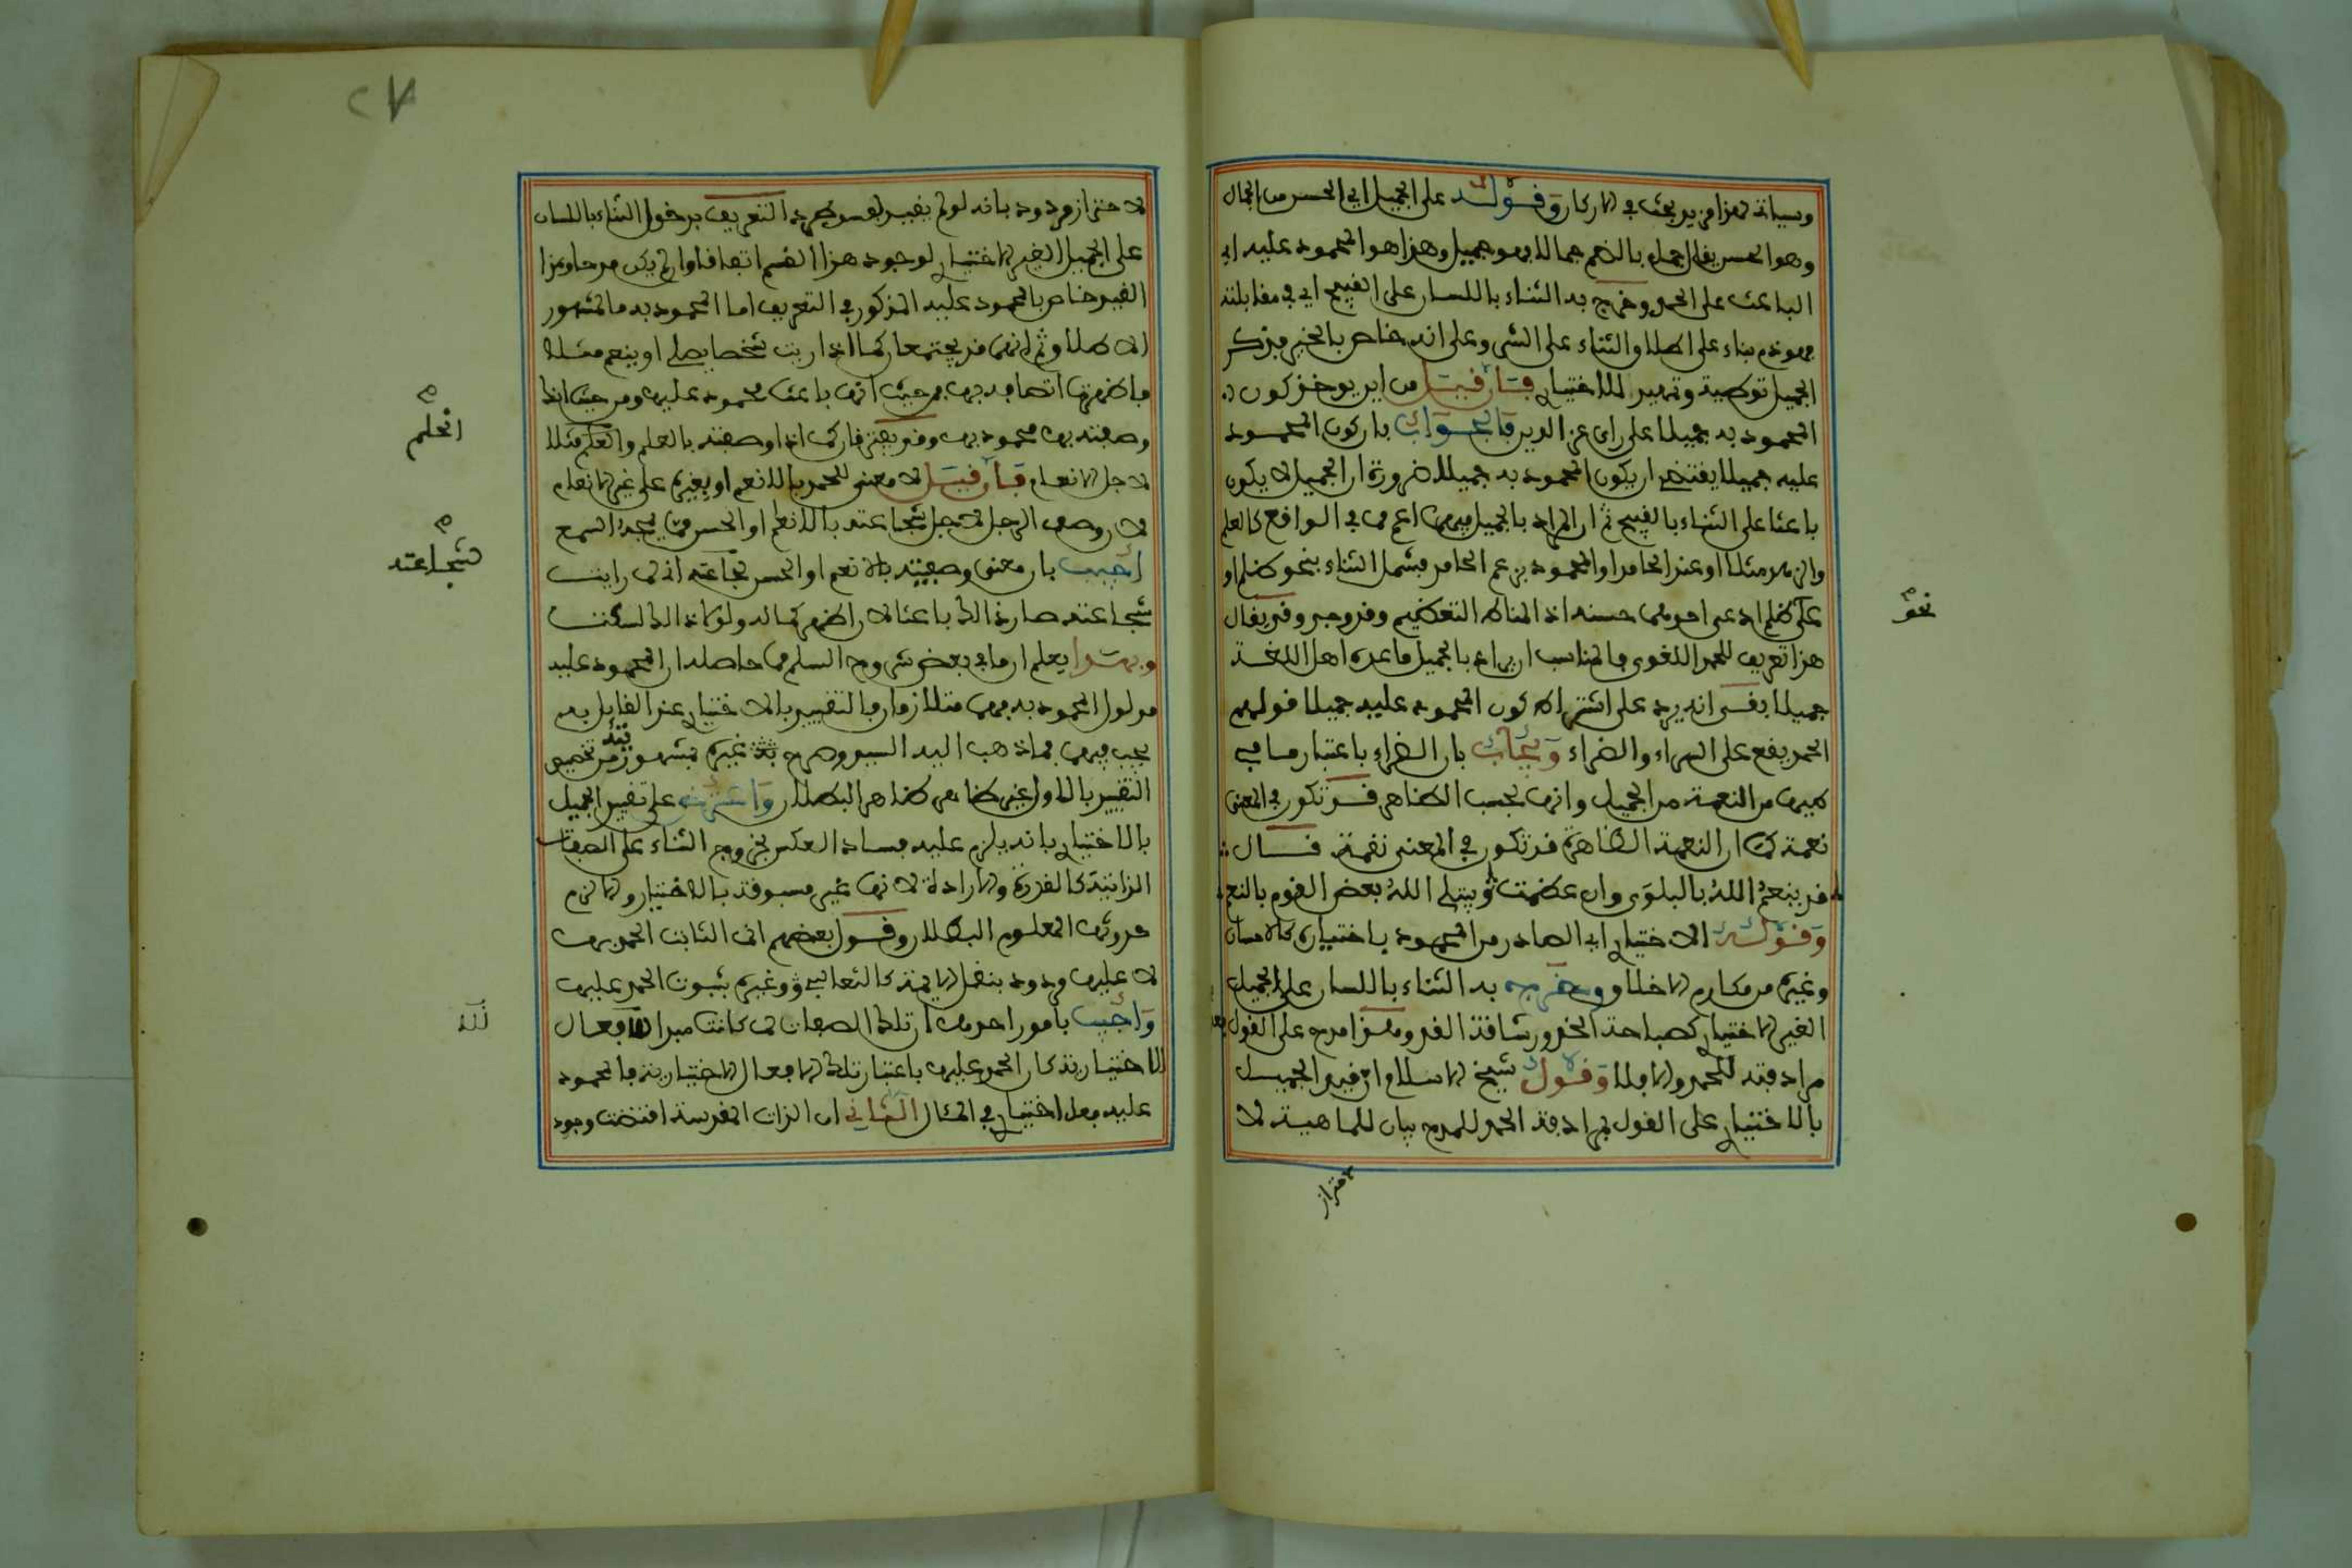 وسياتي لهذا مزيد بحث في الاركان وقوله على الجميل اي الحسن من الجمال
وهو الحسن يقال جمل بالضم جمالا فهو جميل وهذا هو المحمود عليه اي
الباعث على الحمد وخرج به الثناء باللسان على القبيح اي في مقابلته
بناء على اطلاق الثناء على الشر وعلى انه خاص بالخير فذكر
الجميل توطية وتمهيد للاختياري فان قيل من اين يوخذ كون
المحمود به جميلا على راي عز الدين فالجواب بان كون المحمود
عليه جميلا يقتضي ان يكون المحمود به جميلا ضرورة ان الجميل لا يكون
باعثا على الثناء بالقبيح ثم ان المراد بالجميل فيهما اعم مما في الواقع كالعلم
مثلا او عند الحامد او المحمود بزعم الحامد فيشمل الثناء بنحو ظلم او
على ظلم ادعى احدهما حسنه اذ المناط التعظيم وقد وجد وقد يقال
هذا تعريف للحمد اللغوي فالمناسب ان يراد بالجميل ما عده اهل اللغة
جميلا بقي انه يرد على اشتراط كون المحمود عليه جميلا قولهم
الحمد يقع على السراء والضراء ويجاب بان الضراء باعتبار ما في
طيها من النعمة من الجميل وانها بحسب الظاهر قد تكون في المعنى
نعمة كما ان النعمة الظاهرة قد تكون في المعنى نقمة قال
قد ينعم الله بالبلوى وان عظمت ويبتلي الله بعض القوم بالنعم
وقوله الاختياري اي الصادر من المحمود باختياره كالاحسان
وغيره من مكارم الاخلاق وخرج به الثناء باللسان على الجميل
الغير الاختياري كصباحة الخد ورشاقة القد وهذا مدح على القول بعدم
مرادفته للحمد والا فلا وقول شيخ الاسلام ان قيد الجميل
بالاختياري على القول بمرادفة الحمد للمدح بيان للماهية لا
احتراز
نحو
٢٧
لا احتراز مردود بانه لو لم يقيد لفسد طرد التعريف بدخول الثناء باللسان
على الجميل الغير الاختياري لوجود هذا القسم اتفاقا وان لم يكن مدحا وهذا
القيد خاص بالمحمود عليه المذكور في التعريف اما المحمود به فالمشهور
الاطلاق ثم انهما قد يجتمعان كما اذا رايت شخصا يصلي او ينعم مثلا
فاظهرت اتصافه بهما فمن حيث انهما باعث محمود عليهما ومن حيث انك
وصفته بهما محمود بهما وقد يفترقان كما اذا وصفته بالعلم والحلم مثلا
لاجل الانعام فان قيل لا معنى للحمد بالانعام او بغيره على غير الانعام
لان وصف الرجل لاجل شجاعته بالانعام او الحسن مما يمجه السمع
اجيب بان معنى وصفيته بالانعام او الحسن لشجاعته اني لما رايت
شجاعته صار ذلك باعثا لان اظهر كماله ولولا ذلك لسكت
وبهذا يعلم ان ما في بعض شروح السلم مما حاصله ان المحمود عليه
مدلول المحمود به فهما متلازمان فالتقييد بالاختياري عند القايل به
يجب فيهما كما ذهب اليه السيد وصرح به غيره فشهوزيته من تخصيص
التقييد بالاول غير ظاهر ظاهر البطلان واعترض على تقييد الجميل
بالاختياري بانه يلزم عليه فساد العكس بخروج الثناء على الصفات
الذاتية كالقدرة والارادة لانها غير مسبوقة بالاختيار والا لزم
حدوثها المعلوم البطلان وقول بعضهم ان الثابت الحمد بها
لا عليها مردود بنقل الايمة كالثعالبي وغيره بثبوت الحمد عليها
واجيب بامور احدها ان تلك الصفات لما كانت مبدا لافعال
اختيارية كان الحمد عليها باعتبار تلك الافعال الاختيارية فالمحمود
عليه فعل اختياري في المثال الثاني ان الذات المقدسة اقتضت وجود
الحلم
شجاعته